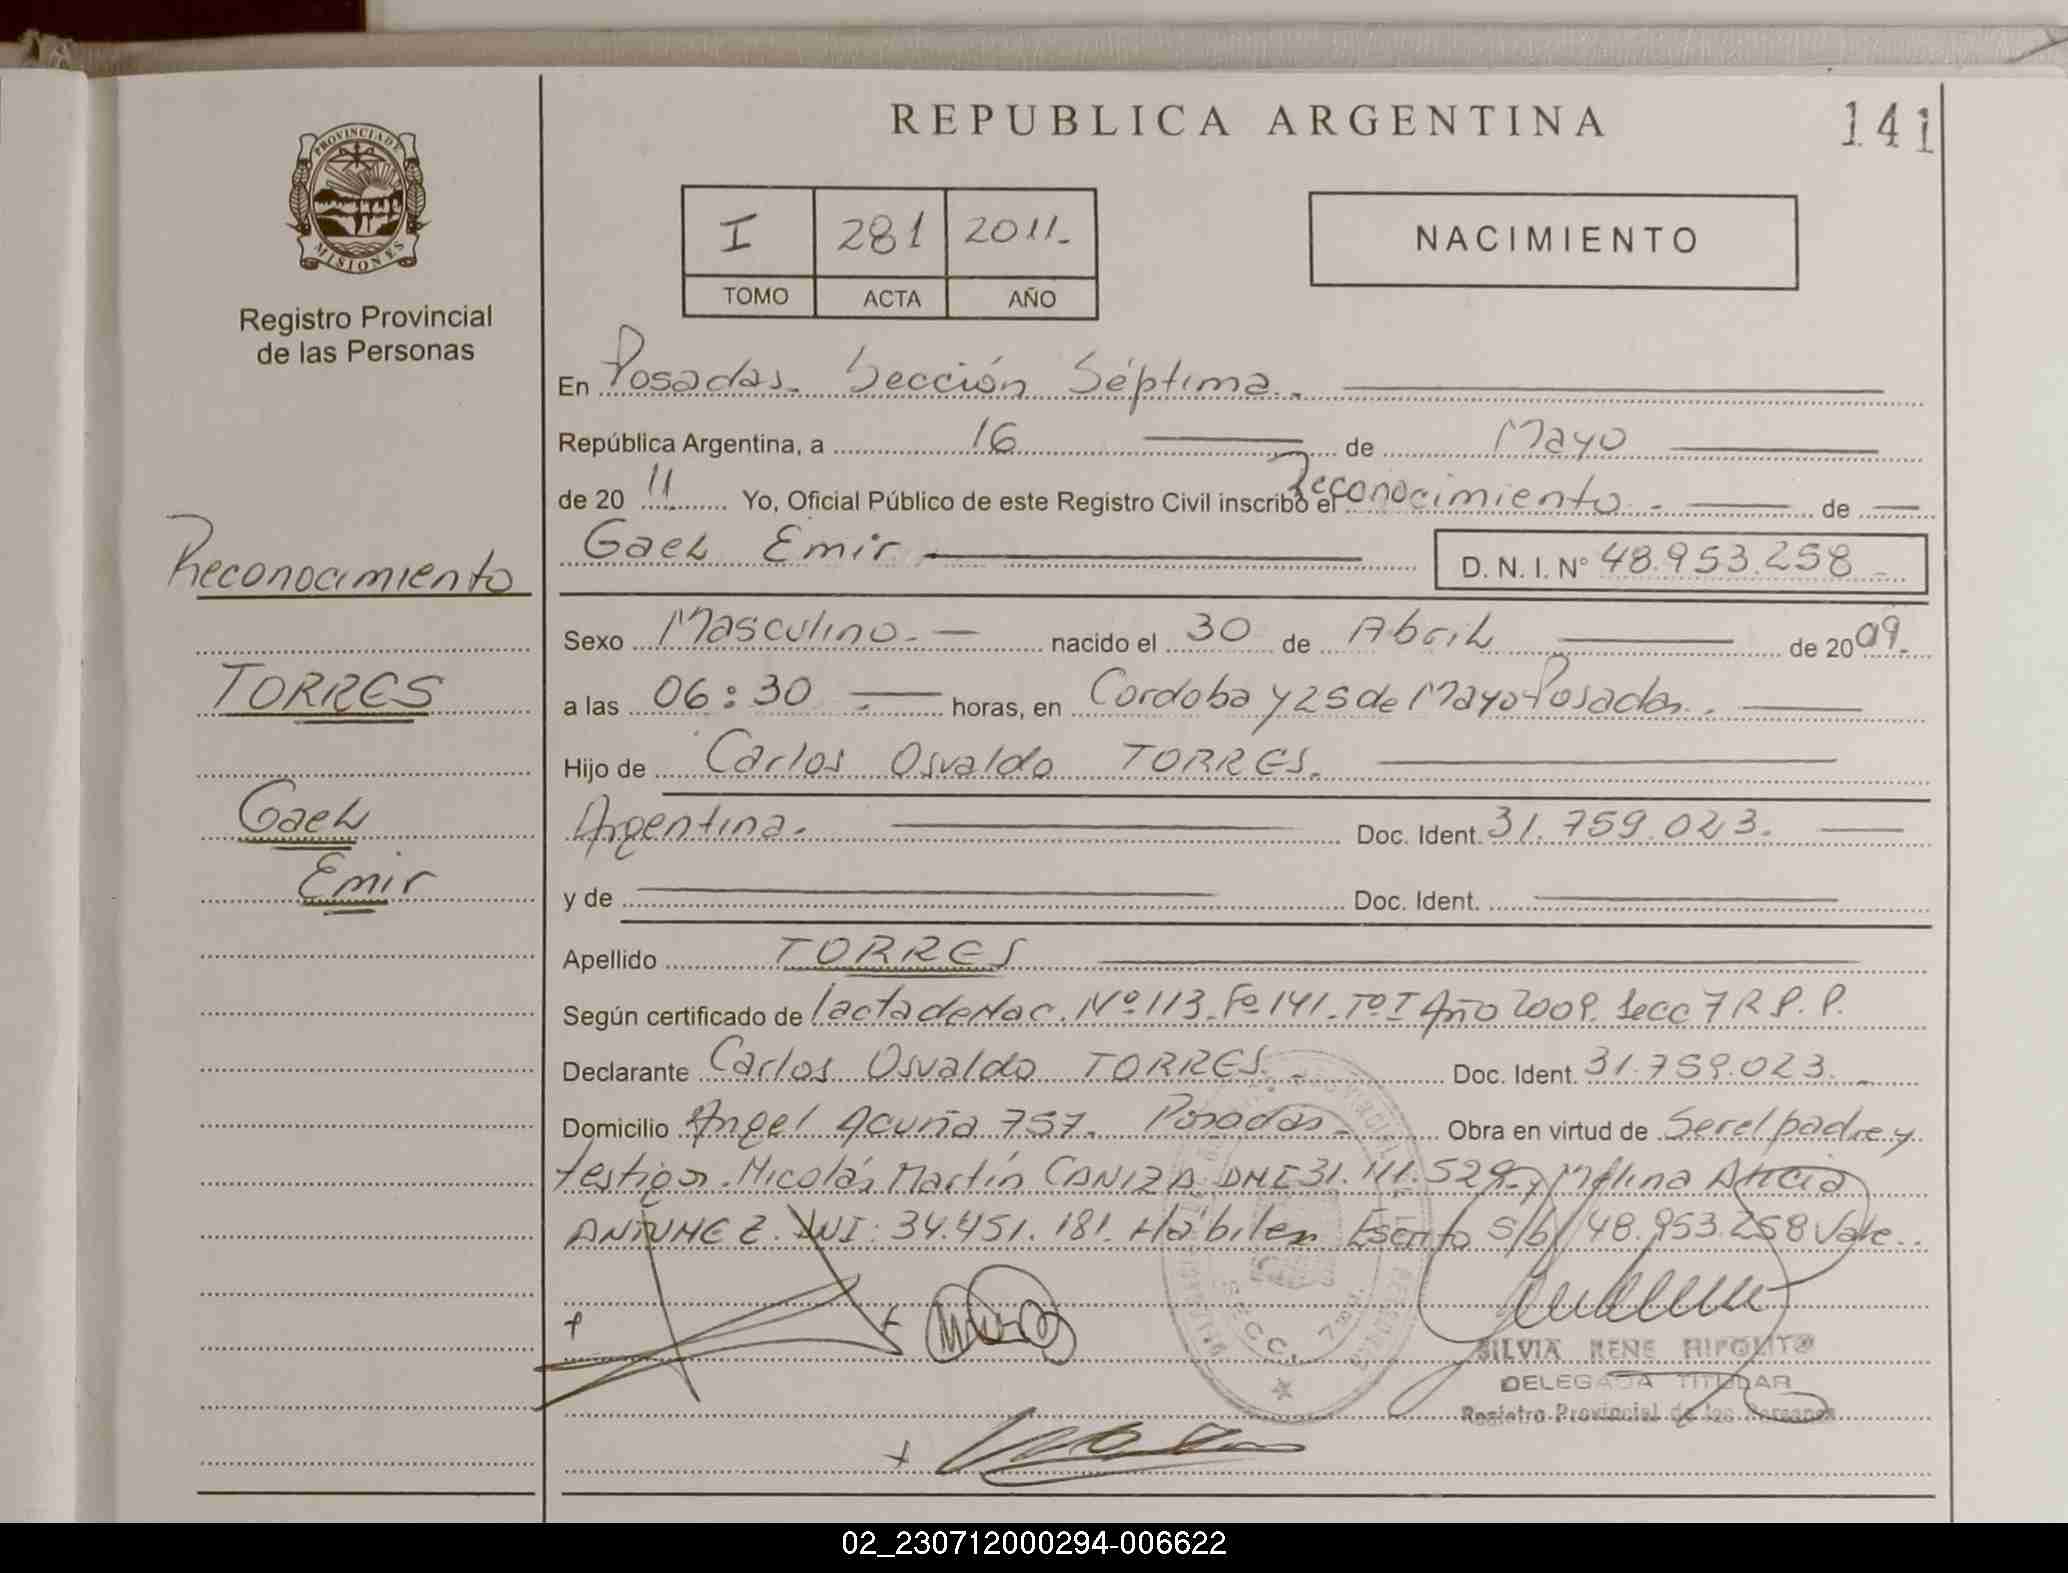 REPUBLICA ARGENTINA
141
PROVINCIA DE
MISIONES
Registro Provincial
de las Personas
I 281 2011.-
TOMO ACTA AÑO
NACIMIENTO
En Posadas. Sección Séptima.
República Argentina, a 16 de Mayo
de 2011 Yo, Oficial Público de este Registro Civil inscribo el Reconocimiento.- de
Gael Emir D. N. I. N° 48.953.258
Sexo Masculino.- nacido el 30 de Abril de 2009.
a las 06:30 horas, en Cordoba y 25 de Mayo Posadas.
Hijo de Carlos Osvaldo TORRES.
Argentina. Doc. Ident. 31.759.023.
y de Doc. Ident.
Apellido TORRES
Según certificado de / acta de Nac. Nº 113. Fº 141. Tº I Año 2009. Secc 7 R P. P.
Declarante Carlos Osvaldo TORRES.- Doc. Ident. 31.759.023.-
Domicilio Angel Acuña 757. Posadas.- Obra en virtud de Ser el padre y
testigos. Nicolás Martín CANIZA DNI 31.111.529. y Melina Alicia
ANTUNEZ. DNI: 34.451.181. Hábiles Escrito S/b/ 48.953.258 Vale..
Reconocimiento
TORRES
Gael
Emir
SECC. 7ma.
SILVIA RENE HIPOLITO
DELEGADA TITULAR
Registro Provincial de las Personas
02_230712000294-006622